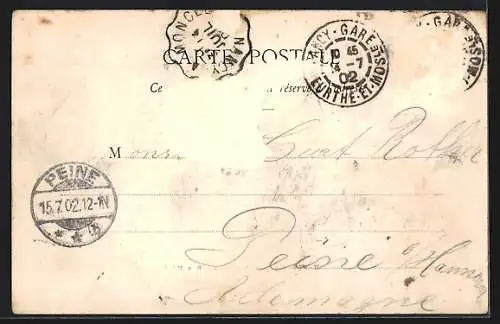 MONCEL NANCY
CARTE POSTALE
NANCY-GARE 10 45 4-7 02 MEURTHE-ET-MOSELLE
GARE MOSEL
Ce réservé
M Curt Rother
PEINE 15.7.02.12-1N * * (b
Peine
Hannover
Allemagne